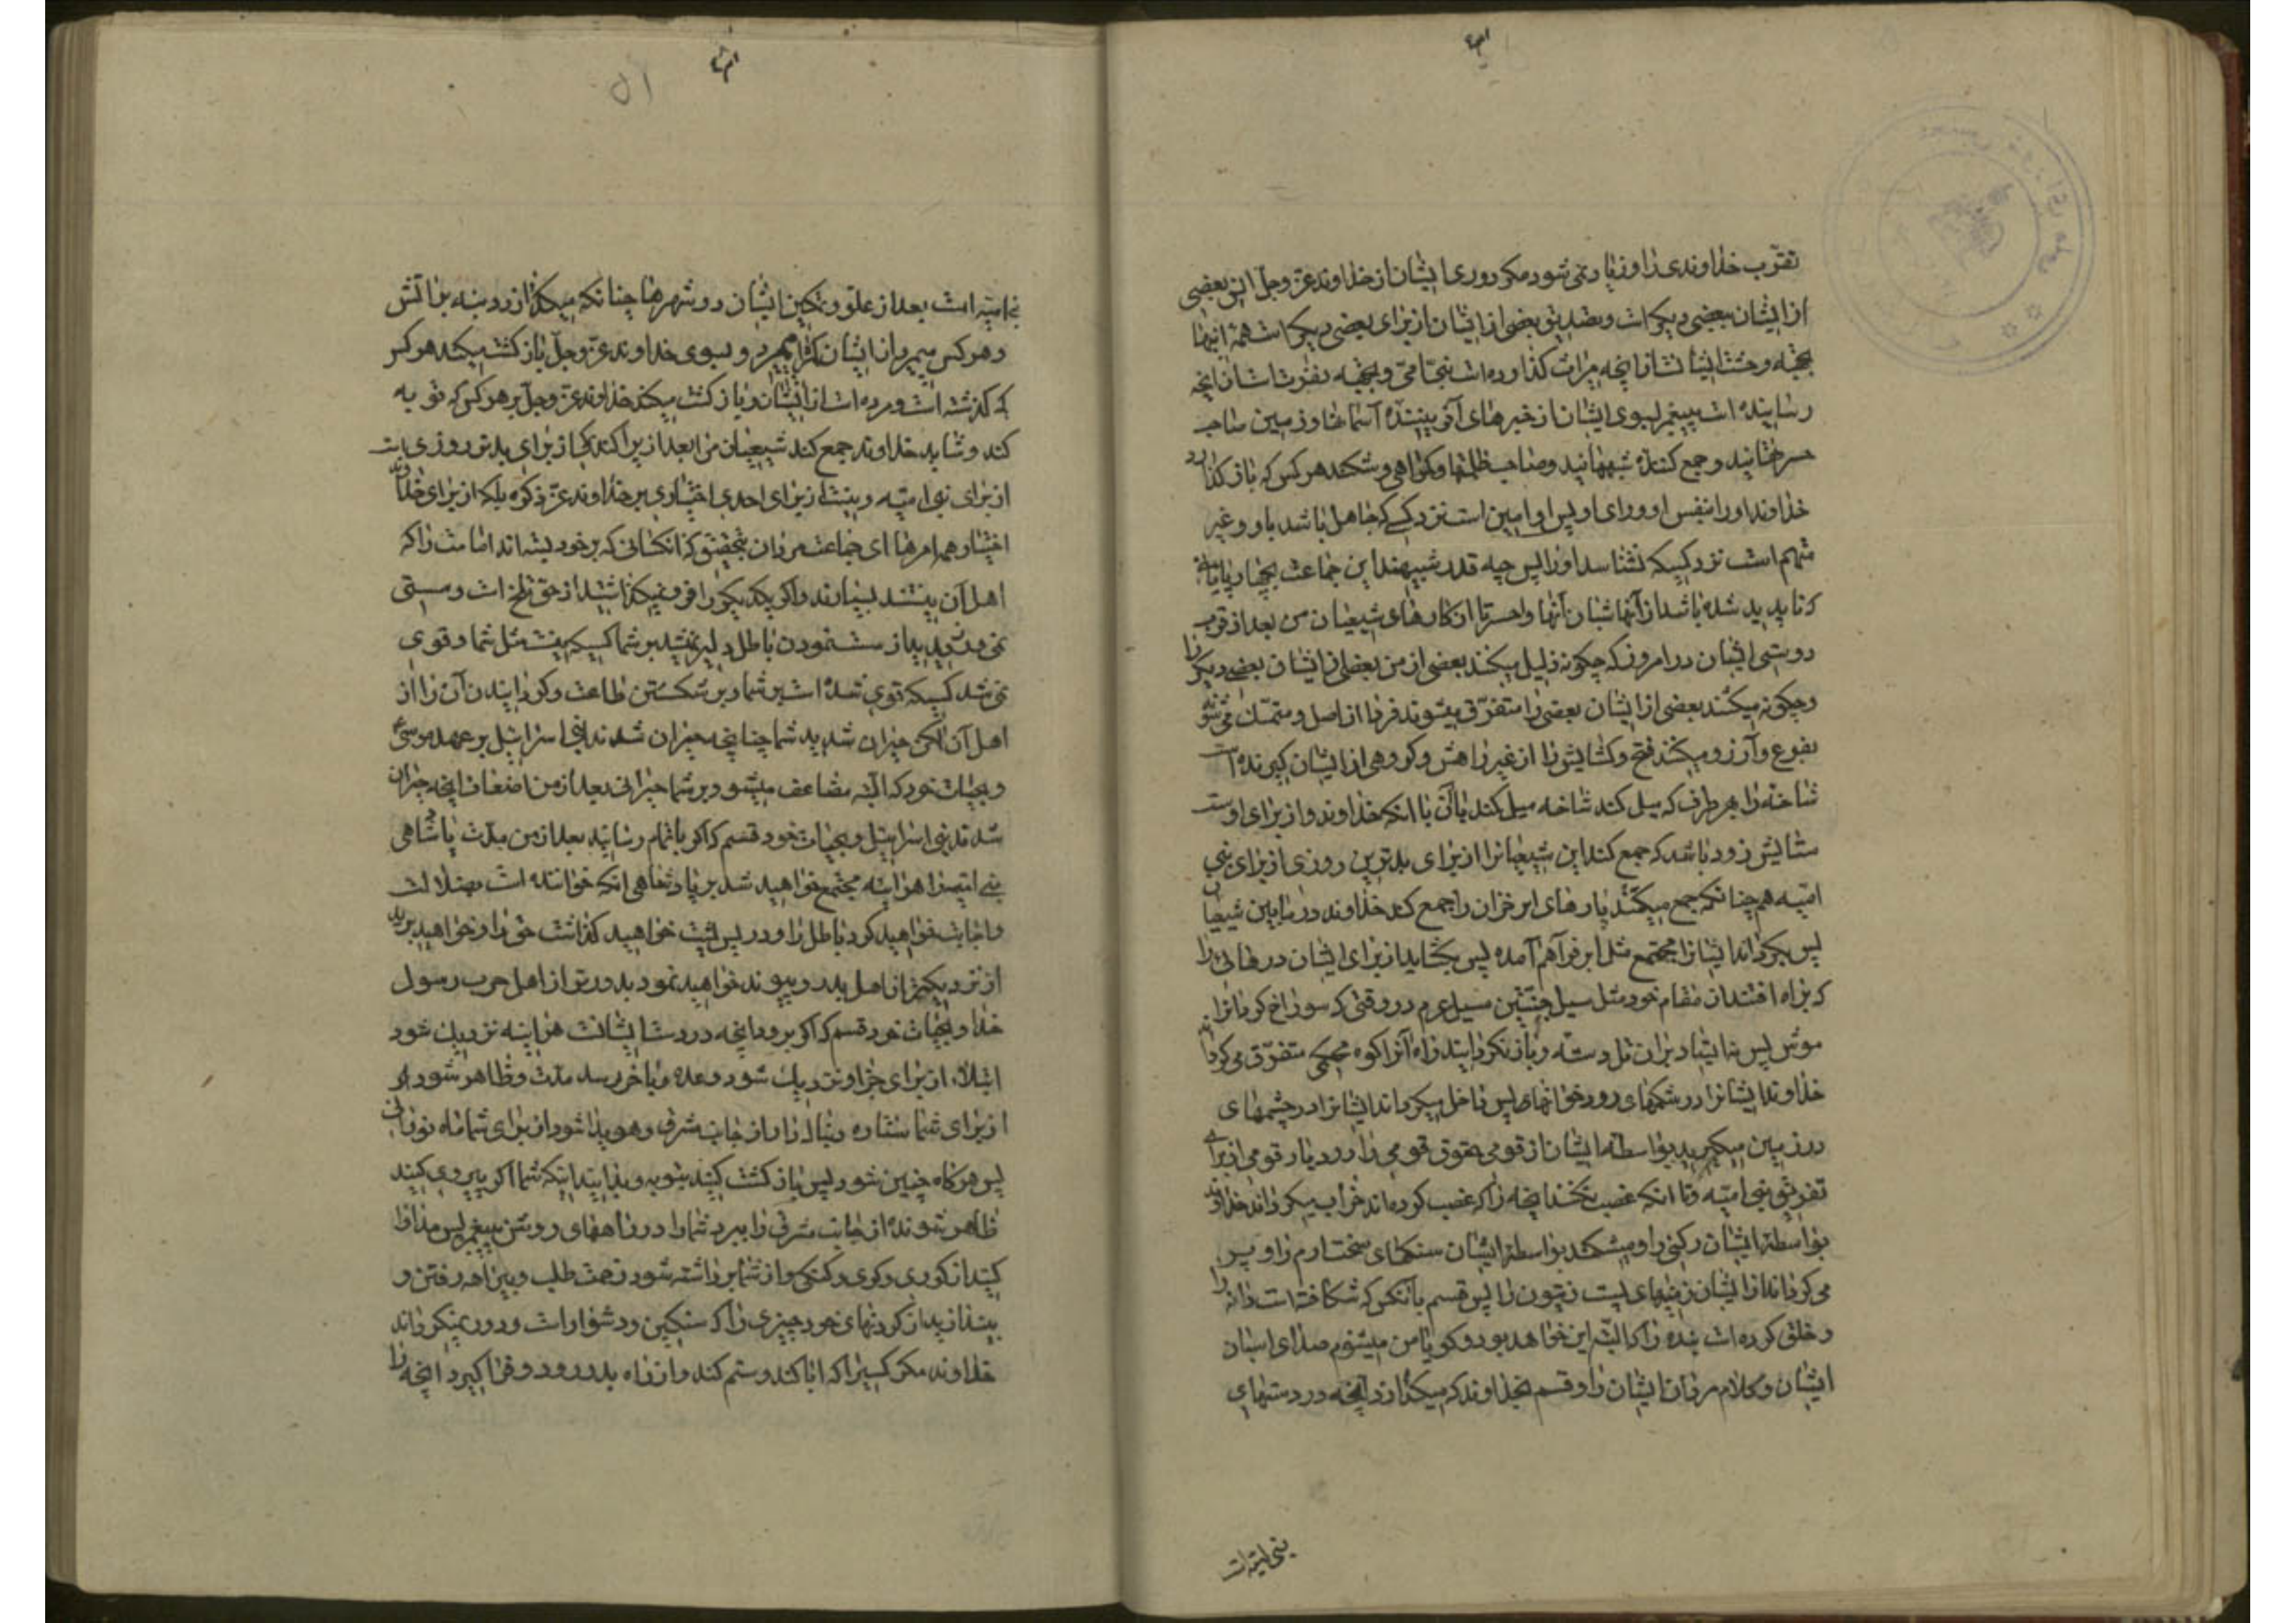 تقرّب خداوندی را و زیاد نمی شود مکر دوری ایشان از خداوند عزّ و جلّ انس بعضی
از ایشان ببعضی دیکر است و تصدیق بعضی از ایشان از برای بعضی دیکر است همه اینها
بجهة وحشت ایشانست از انچه میراث کذارده است نبیّ امّی و بجهة نفرتست از انچه
رسانیده است پیغمبر بسوی ایشان از خبرهای آفریننده آسمانها و زمین صاحب
حسرتهایند و جمع کننده شبهه‌هایند و صاحب ظلمتها و کمراهی و شکند هر کس که باز کذارد
خداوند او را بنفس او و رای او پس او امین است نزد کسی که جاهل باشد باو و غیر
متهم است نزد کسیکه نشناسد او را پس چه قدر شبیهند این جماعت بچهارپایانی
که ناپدید شده باشد از آنها شبان آنها واحسرتا از کارهای شیعیان من بعد از قرب
دوستی ایشان در امروز که چکونه ذلیل میکنند بعضی از من بعضی از ایشان بعضی دیکر را
و چکونه میکشند بعضی از ایشان بعضی را متفرّق میشوند فردا از اصل و متمسّک می‌شوند
بفرع و آرزو میکنند فتح و کشایش را از غیر راهش و کروهی از ایشان کیرنده است
شاخه را بهر طرف که میل کند شاخه میل کند با آن با انکه خداوند و از برای اوست
ستایش زود باشد که جمع کند این شیعیانرا از برای بدترین روزی از برای بنی
امیّه هم چنانکه جمع میکند پارهای ابر خزان را جمع کند خداوند در مابین شیعیان
پس بکرداند ایشانرا مجتمع مثل ابر فراهم آمده پس بکشاید از برای ایشان درهائی را
که براه افتند از مقام خود مثل سیل جنّتین سیل عرم در وقتی که سوراخ کرد انرا
موش پس نه ایستاد بران تل دسته و باز نکردانید راه آنرا کوه محکمی متفرّق می کرداند
خداوند ایشانرا در شکمهای رودخوانها پس داخل میکرداند ایشانرا در چشمهای
در زمین میکیرد بواسطه ایشان از قومی حقوق قومی را و در دیار قومی از برای
تفریق بنی امیّه و تا انکه غصب نکنند انچه را که غصب کرده‌اند خراب میکرداند خداوند
بواسطه ایشان رکنی را و میشکند بواسطه ایشان سنکهای سخت ارم را و پر
می کرداند از ایشان زمینهای پست زیتون را پس قسم بانکس که شکافته است دانه را
و خلق کرده است بنده را که البتّه این خواهد بود و کویا من میشنوم صدای اسبان
ایشان و کلام مردان ایشان را و قسم بخداوند که میکدازد انچه در دستهای
بنی امیّه است
بنی امیّه است بعد از علوّ و تمکین ایشان در شهرها چنانکه میکدازد دنبه بر آتش
و هر کس بمیرد از ایشان کمراه بمیرد و بسوی خداوند عزّ و جلّ باز کشت میکند هر کس
که کذشته است و مرده است از ایشان و باز کشت میکند خداوند عزّ و جلّ بر هر کس که توبه
کند و شاید خداوند جمع کند شیعیان مرا بعد از پراکندکی از برای بدتر روزی است
از برای بنی امیّه و نیست از برای احدی اختیاری بر خداوند عزّ ذکره بلکه از برای خداوند
اختیار همه امرها ای جماعت مردان بتحقیق که انکسانی که بر خود بسته‌اند امامت را که
اهل آن نیستند بسیارند و اکر یکدیکر را فرو نمیکذاشتید از حقّ تلخ است و سستی
نمی ورزیدید از سست نمودن باطل دلیر نمیشد بر شما کسیکه نیست مثل شما و قوی
نمی شد کسیکه قوی شده است بر شما و بر شکستن طاعت و کردانیدن آن را از
اهل آن لکن حیران شدید شما چنانچه حیران شدند بنی اسرائیل بر عهد موسی ع
و بحیات خود که البتّه مضاعف میشود بر شما حیرانی بعد از من اضعاف انچه حیران
شدند بنی اسرائیل و بحیات خود قسم که اکر باتمام رسانید بعد از من مدّت پادشاهی
بنی امیّه را هراینه مجتمع خواهید شد بر پادشاهی انکه خواننده است بضلالت
و اجابت خواهید کرد باطل را و در پس پشت خواهید کذاشت حقّ را و خواهید برید
از نزدیکتر از اهل بدر و پیوند خواهید نمود بدورتر از اهل حرب رسول
خدا و بحیات خود قسم که اکر برود انچه در دست ایشانست هراینه نزدیک شود
ابتلاء از برای جزا و نزدیک شود وعده و باخر رسد مدّت و ظاهر شود از
از برای شما ستاره دنباله دار از جانب مشرق و هویدا شود از برای شما ماه نورانی
پس هرکاه چنین شود پس باز کشت کنید بتوبه و بدانید اینکه شما اکر پیروی کنید
ظاهر شونده از جانب مشرق را میبرد شما را در راههای روشن پیغمبر پس مداوا
کنید از کوری و کری و کنکی و از شما برداشته شود زحمت طلب و بیراهه رفتن و
بیندازید از کردنهای خود چیزی را که سنکین و دشوار است و دور نمیکرداند
خداوند مکر کسیرا که ابا کند و ستم کند و از راه بدر رود و فرا کیرد انچه را